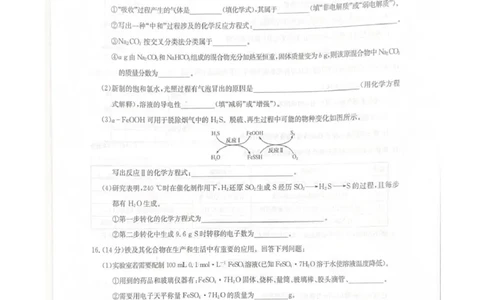 ①“吸收”过程产生的气体是________(填化学式),其属于________(填“非电解质”或“弱电解质”)。
②写出一种“中和”过程涉及的化学反应方程式:________。
③Na₂CO₃ 按交叉分类法分类属于________。
④a g 由 Na₂CO₃ 和 NaHCO₃ 组成的混合物充分加热至恒重,固体质量变为 b g,则该原混合物中 Na₂CO₃
的质量分数为________。
(2)新制的饱和氯水,光照过程有气泡冒出的原因是________(用化学方程
式解释),溶液的导电性________(填“减弱”或“增强”)。
(3)α-FeOOH 可用于脱除烟气中的 H₂S。脱硫、再生过程中可能的物种变化如图所示。
H₂S FeOOH S
反应Ⅰ 反应Ⅱ
H₂O FeSSH O₂
写出反应Ⅱ的化学方程式:________。
(4)研究表明,240 ℃时在催化剂作用下,H₂ 还原 SO₂ 生成 S 经历 SO₂→H₂S→S 的过程,且每步
都有 H₂O 生成。
①第一步转化的化学方程式为________。
②第二步转化中生成 9.6 g S 时转移的电子数为________。
16.(14分)铁及其化合物在生产和生活中有重要的应用。回答下列问题:
(1)实验室若需要配制 100 mL 0.1 mol·L⁻¹ FeSO₄ 溶液(已知 FeSO₄·7H₂O 溶于水使溶液温度降低)。
①用到的药品和玻璃仪器有:FeSO₄·7H₂O 固体、烧杯、量筒、玻璃棒、胶头滴管、________。
②需要用电子天平称量 FeSO₄·7H₂O 的质量为________g。